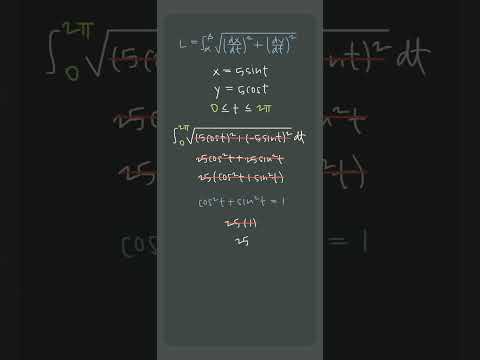 L = ∫αβ √((dx/dt)² + (dy/dt)²)
x = 5sint
y = 5cost
0 ≤ t ≤ 2π
∫02π √((5cost)² + (-5sint)²) dt
25cos²t + 25sin²t
25(cos²t + sin²t)
cos²t + sin²t = 1
25(1)
25